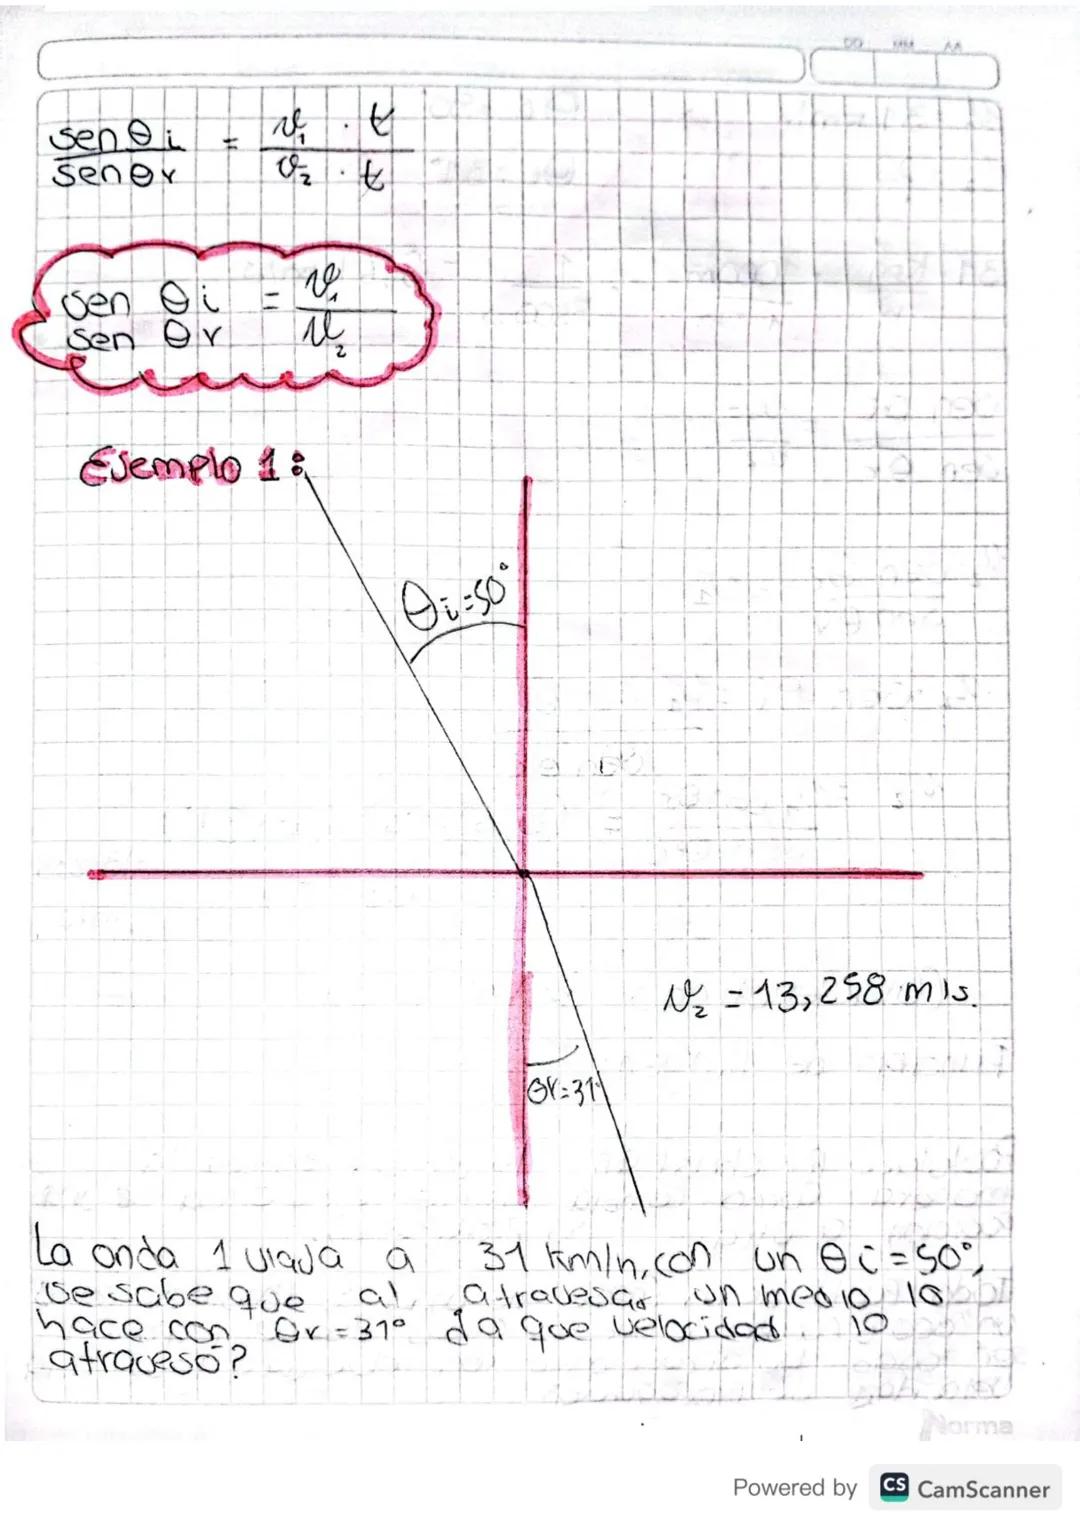 DD MM AA
sen θi = v₁ · t
sen θr v₂ · t
sen θi = v₁
sen θr v₂
Ejemplo 1:
θi=50°
v₂ = 13,258 m/s.
θr=31°
La onda 1 viaja a 31 km/h, con un θi=50°,
se sabe que al atravesar un medio lo
hace con θr=31° ¿a que velocidad lo
atravesó?
Norma
Powered by CS CamScanner